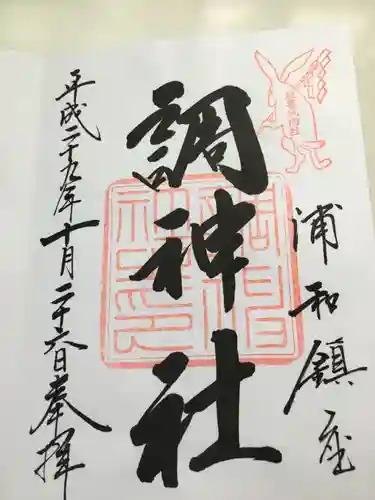 浦和鎮座
調神社
平成二十九年十月二十六日奉拝